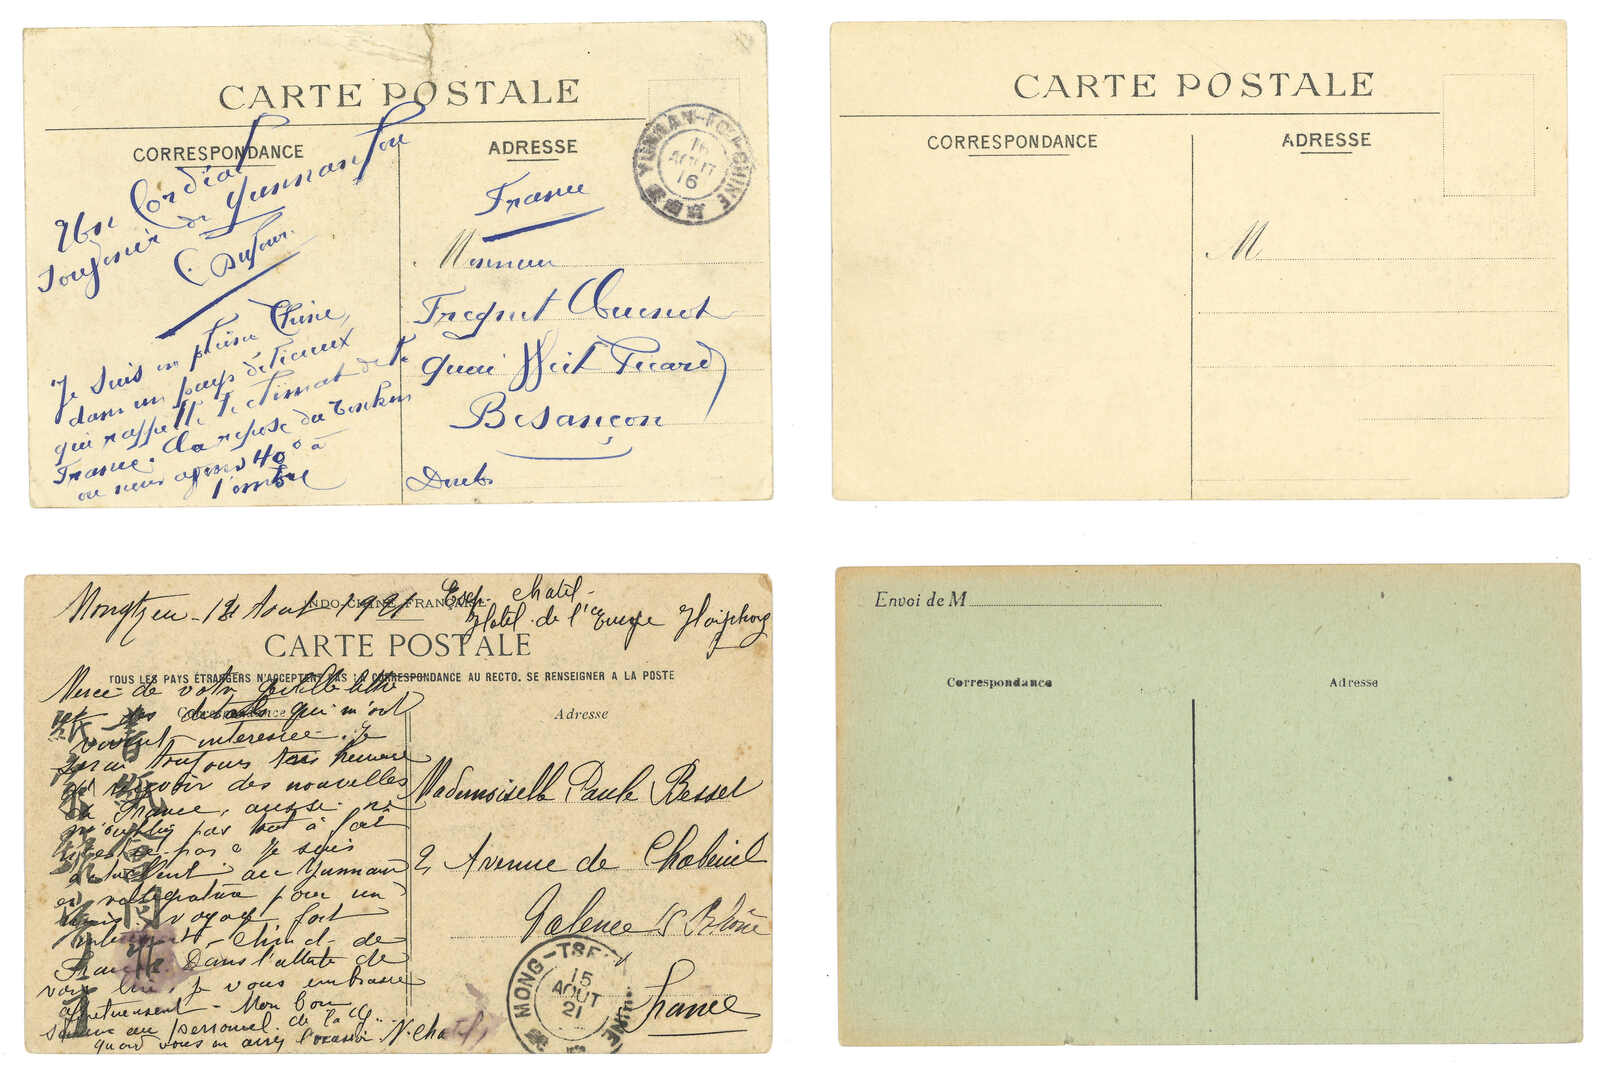 CARTE POSTALE
CORRESPONDANCE
ADRESSE
YUNNAN-FOU CHINE
16
AOUT
16
Un Cordial
Souvenir de Yunnanfou
C. Dufour.
Je suis en pleine Chine,
dans un pays délicieux
qui rappelle le climat de la
France. Ca repose du Tonkin
où nous avons 40° à
l'ombre
France
Monsieur
Quai Veil Picard
Besançon
Doubs
CARTE POSTALE
CORRESPONDANCE
ADRESSE
M
Mongtzeu - 12 Aout 1921
Chatel -
Hotel de l'Europe Haiphong
INDO-CHINE FRANÇAISE
CARTE POSTALE
TOUS LES PAYS ÉTRANGERS N'ACCEPTENT PAS LA CORRESPONDANCE AU RECTO. SE RENSEIGNER A LA POSTE
Correspondance
Adresse
Merci de votre gentille lettre
et des détails qui m'ont
vivement interessée. Je
serai toujours très heureuse
de recevoir des nouvelles
de France, aussi ne
m'oubliez pas tout à fait
n'est-ce-pas? Je suis
actuellement au Yunnam
en villégiature pour un
mois. Voyage fort
interessant - Climat de
France. Dans l'attente de
vous lire, je vous embrasse
affectueusement - Mon bon
souvenir au personnel de la
quand vous en aurez l'occasion. N. Chatel
Mademoiselle Paule Besset
2 Avenue de Chabeuil
Valence s/ Rhône
France
MONG-TSEU CHINE
15
AOUT
21
Envoi de M
Correspondance
Adresse